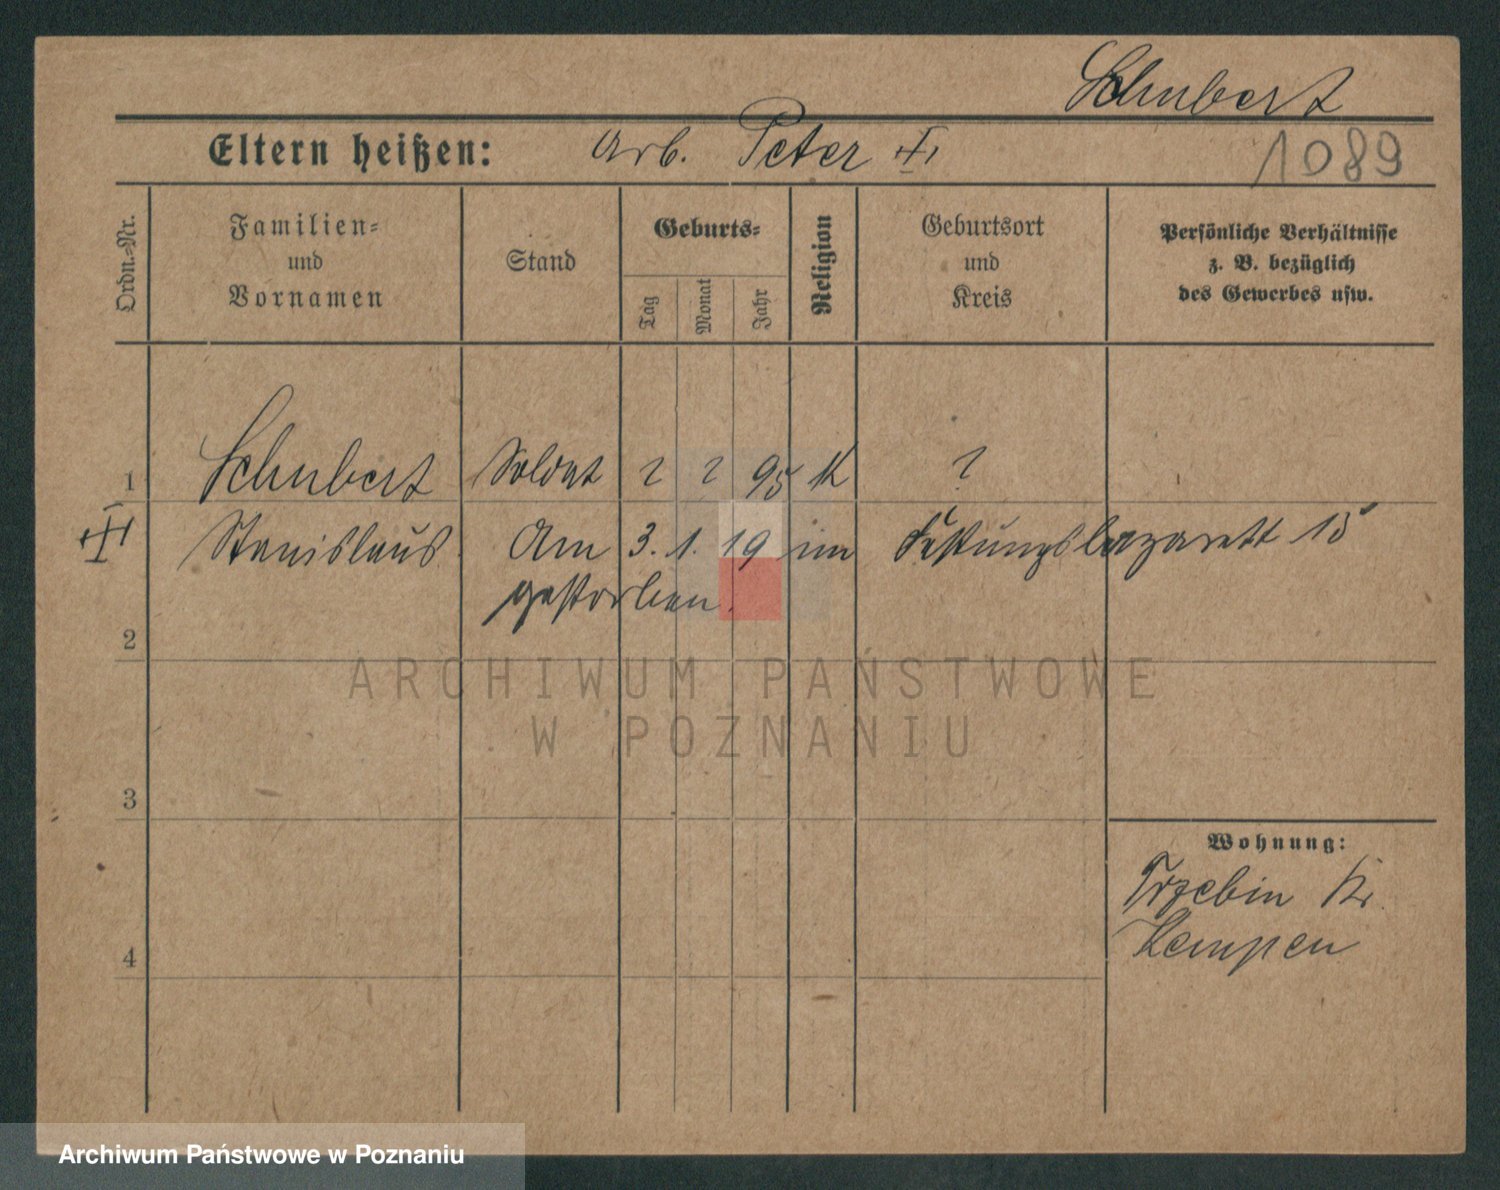 Schubert
Eltern heißen: Arb. Peter
1089
Ordn.-Nr.
Familien-
und
Vornamen
Stand
Geburts-
Tag
Monat
Jahr
Religion
Geburtsort
und
Kreis
Persönliche Verhältnisse
z. B. bezüglich
des Gewerbes usw.
1 Schubert Soldat ? ? 95 K ?
Stanislaus Am 3. 1. 19 im Festungslazarett 15
gestorben.
2
3
4
Wohnung:
Trzebin Kr.
Kempen
ARCHIWUM PAŃSTWOWE
W POZNANIU
Archiwum Państwowe w Poznaniu